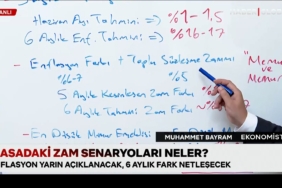 ANLI
Haziran Ayı Tahmini => %1 - 1,5
6 Aylık Enf. Tahmini => %16-17
- Enflasyon Farkı + Toplu Sözleşme Zammı
%6-7 %5
"Memur
ve
Memur
5 Aylık Kesinleşen Zam Farkı
6 Aylık Tahmini Zam Farkı
- En Düşük Memur Emeklisi
MUHAMMET BAYRAM EKONOMİST
ASADAKİ ZAM SENARYOLARI NELER?
FLASYON YARIN AÇIKLANACAK, 6 AYLIK FARK NETLEŞECEK